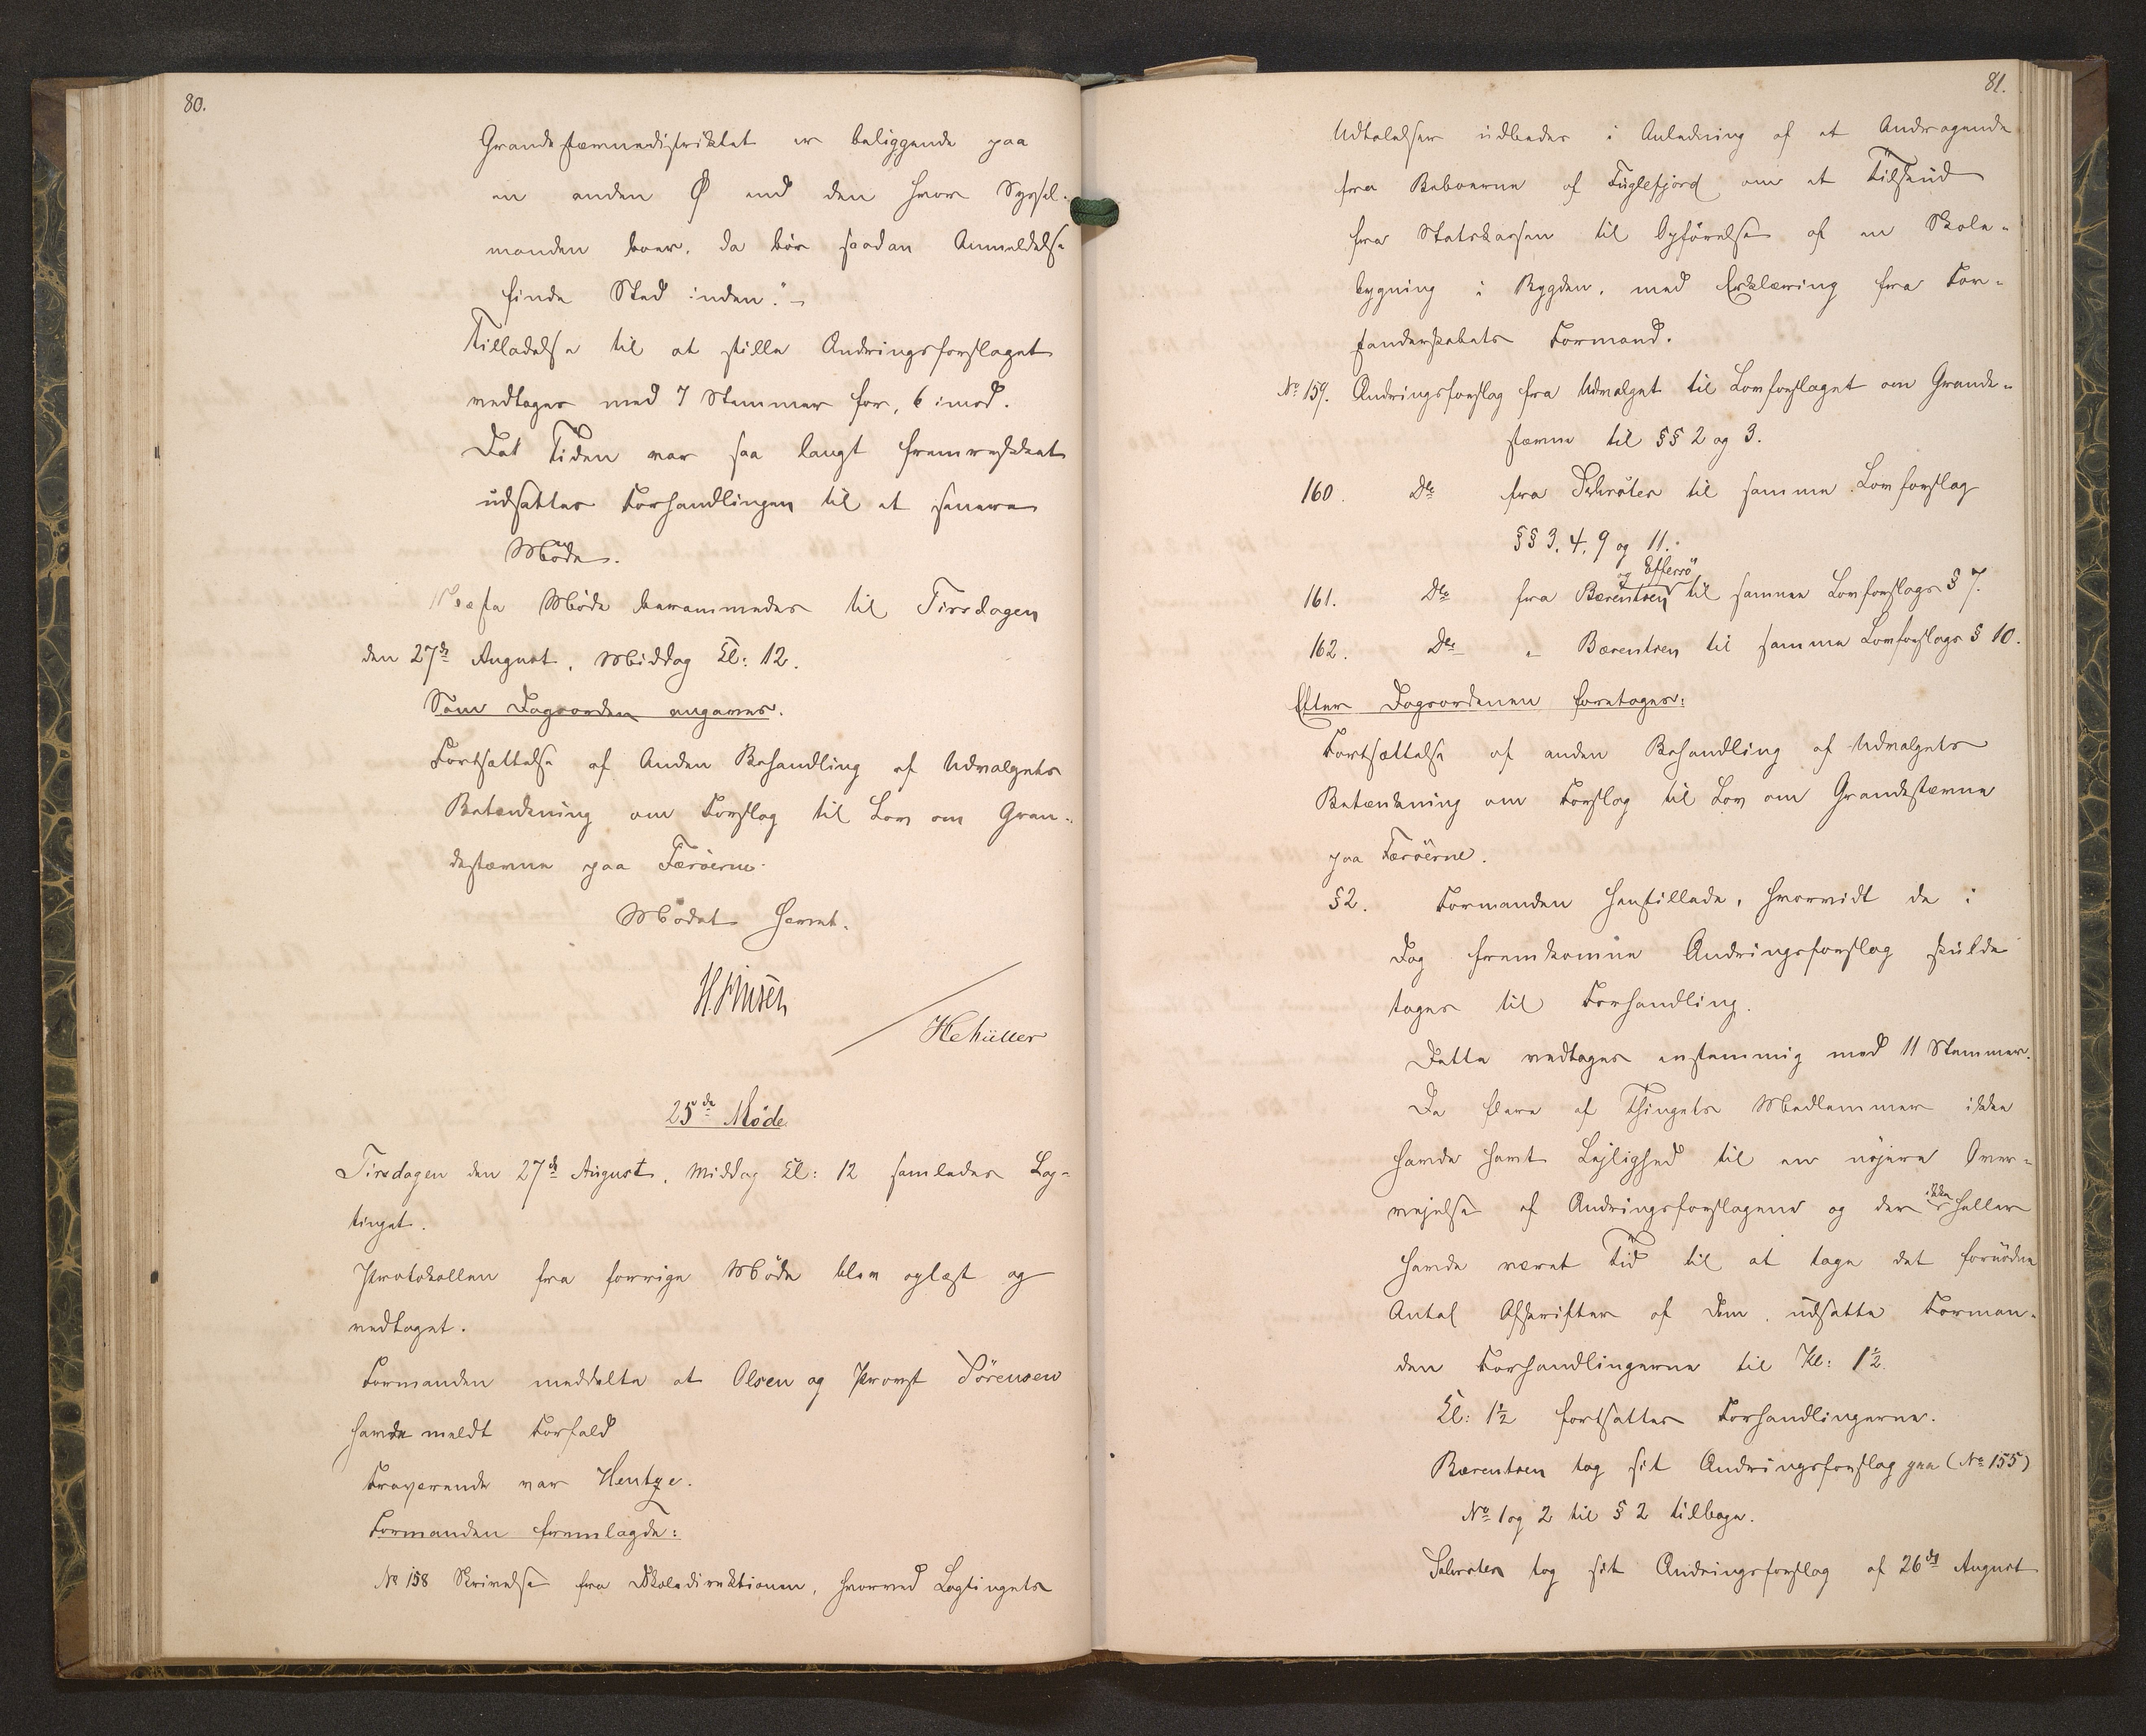 80.
Grandestævnedistriktet er beliggende paa
en anden Ø end den hvor Syssel-
manden boer, da bör saadan Anmeldelse
finde Sted inden."-
Tilladelse til at stille Ændringsforslaget
vedtoges med 7 Stemmer for, 6 imod.
Da Tiden var saa langt fremrykket
udsattes Forhandlingen til et senere
Möde.
Næste Möde berammedes til Tirsdagen
den 27de August, Middag Kl: 12.
Som Dagsorden angaves.
Fortsættelse af Anden Behandling af Udvalgets
Betænkning om Forslag til Lov om Gran-
destævne paa Færöerne.
Mödet hævet.
HMüller
25de Möde
Tirsdagen den 27de August, Middag Kl: 12 samledes Lag-
tinget.
Protokollen fra forrige Möde blev oplæst og
vedtaget.
Formanden meddelte at Olsen og Provst Sörensen
havde meldt Forfald
Fraværende var Hentze.
Formanden fremlagde:
No 158 Skrivelse fra Skoledirektionen, hvorved Lagtingets
81.
Udtalelser udbedes i Anledning af et Andragende
fra Beboerne af Fuglefjord om et Tilskud
fra Statskassen til Opförelse af en Skole-
bygning i Bygden, med Erklæring fra For-
standerskabets Formand.
No 159. Ændringsforslag fra Udvalget til Lovforslaget om Grande-
stævne til §§ 2 og 3.
160. Do fra Schröter til samme Lovforslag
§§ 3, 4, 9 og 11.
og Effersö
161. Do fra Bærentsen til samme Lovforslags § 7.
162. Do " Bærentsen til samme Lovforslags § 10.
Efter Dagsordenen foretoges:
Fortsættelse af anden Behandling af Udvalgets
Betænkning om Forslag til Lov om Grandestævne
paa Færöerne.
§ 2. Formanden henstillede, hvorvidt de i
Dag fremkomne Ændringsforslag skulde
tages til Forhandling.
Dette vedtoges enstemmig med 11 Stemmer.
Da flere af Thingets Medlemmer ikke
havde havt Lejlighed til en nöjere Over-
vejelse af Ændringsforslagene og der ikke heller
havde været Tid til at tage det fornödne
Antal Afskrifter af dem, udsatte Forman-
den Forhandlingerne til Kl: 1½.
Kl: 1½ fortsattes Forhandlingerne.
Bærentsen tog sit Ændringsforslag paa (No 155)
No 1 og 2 til § 2 tilbage.
Schrøter tog sit Ændringsforslag af 26de August